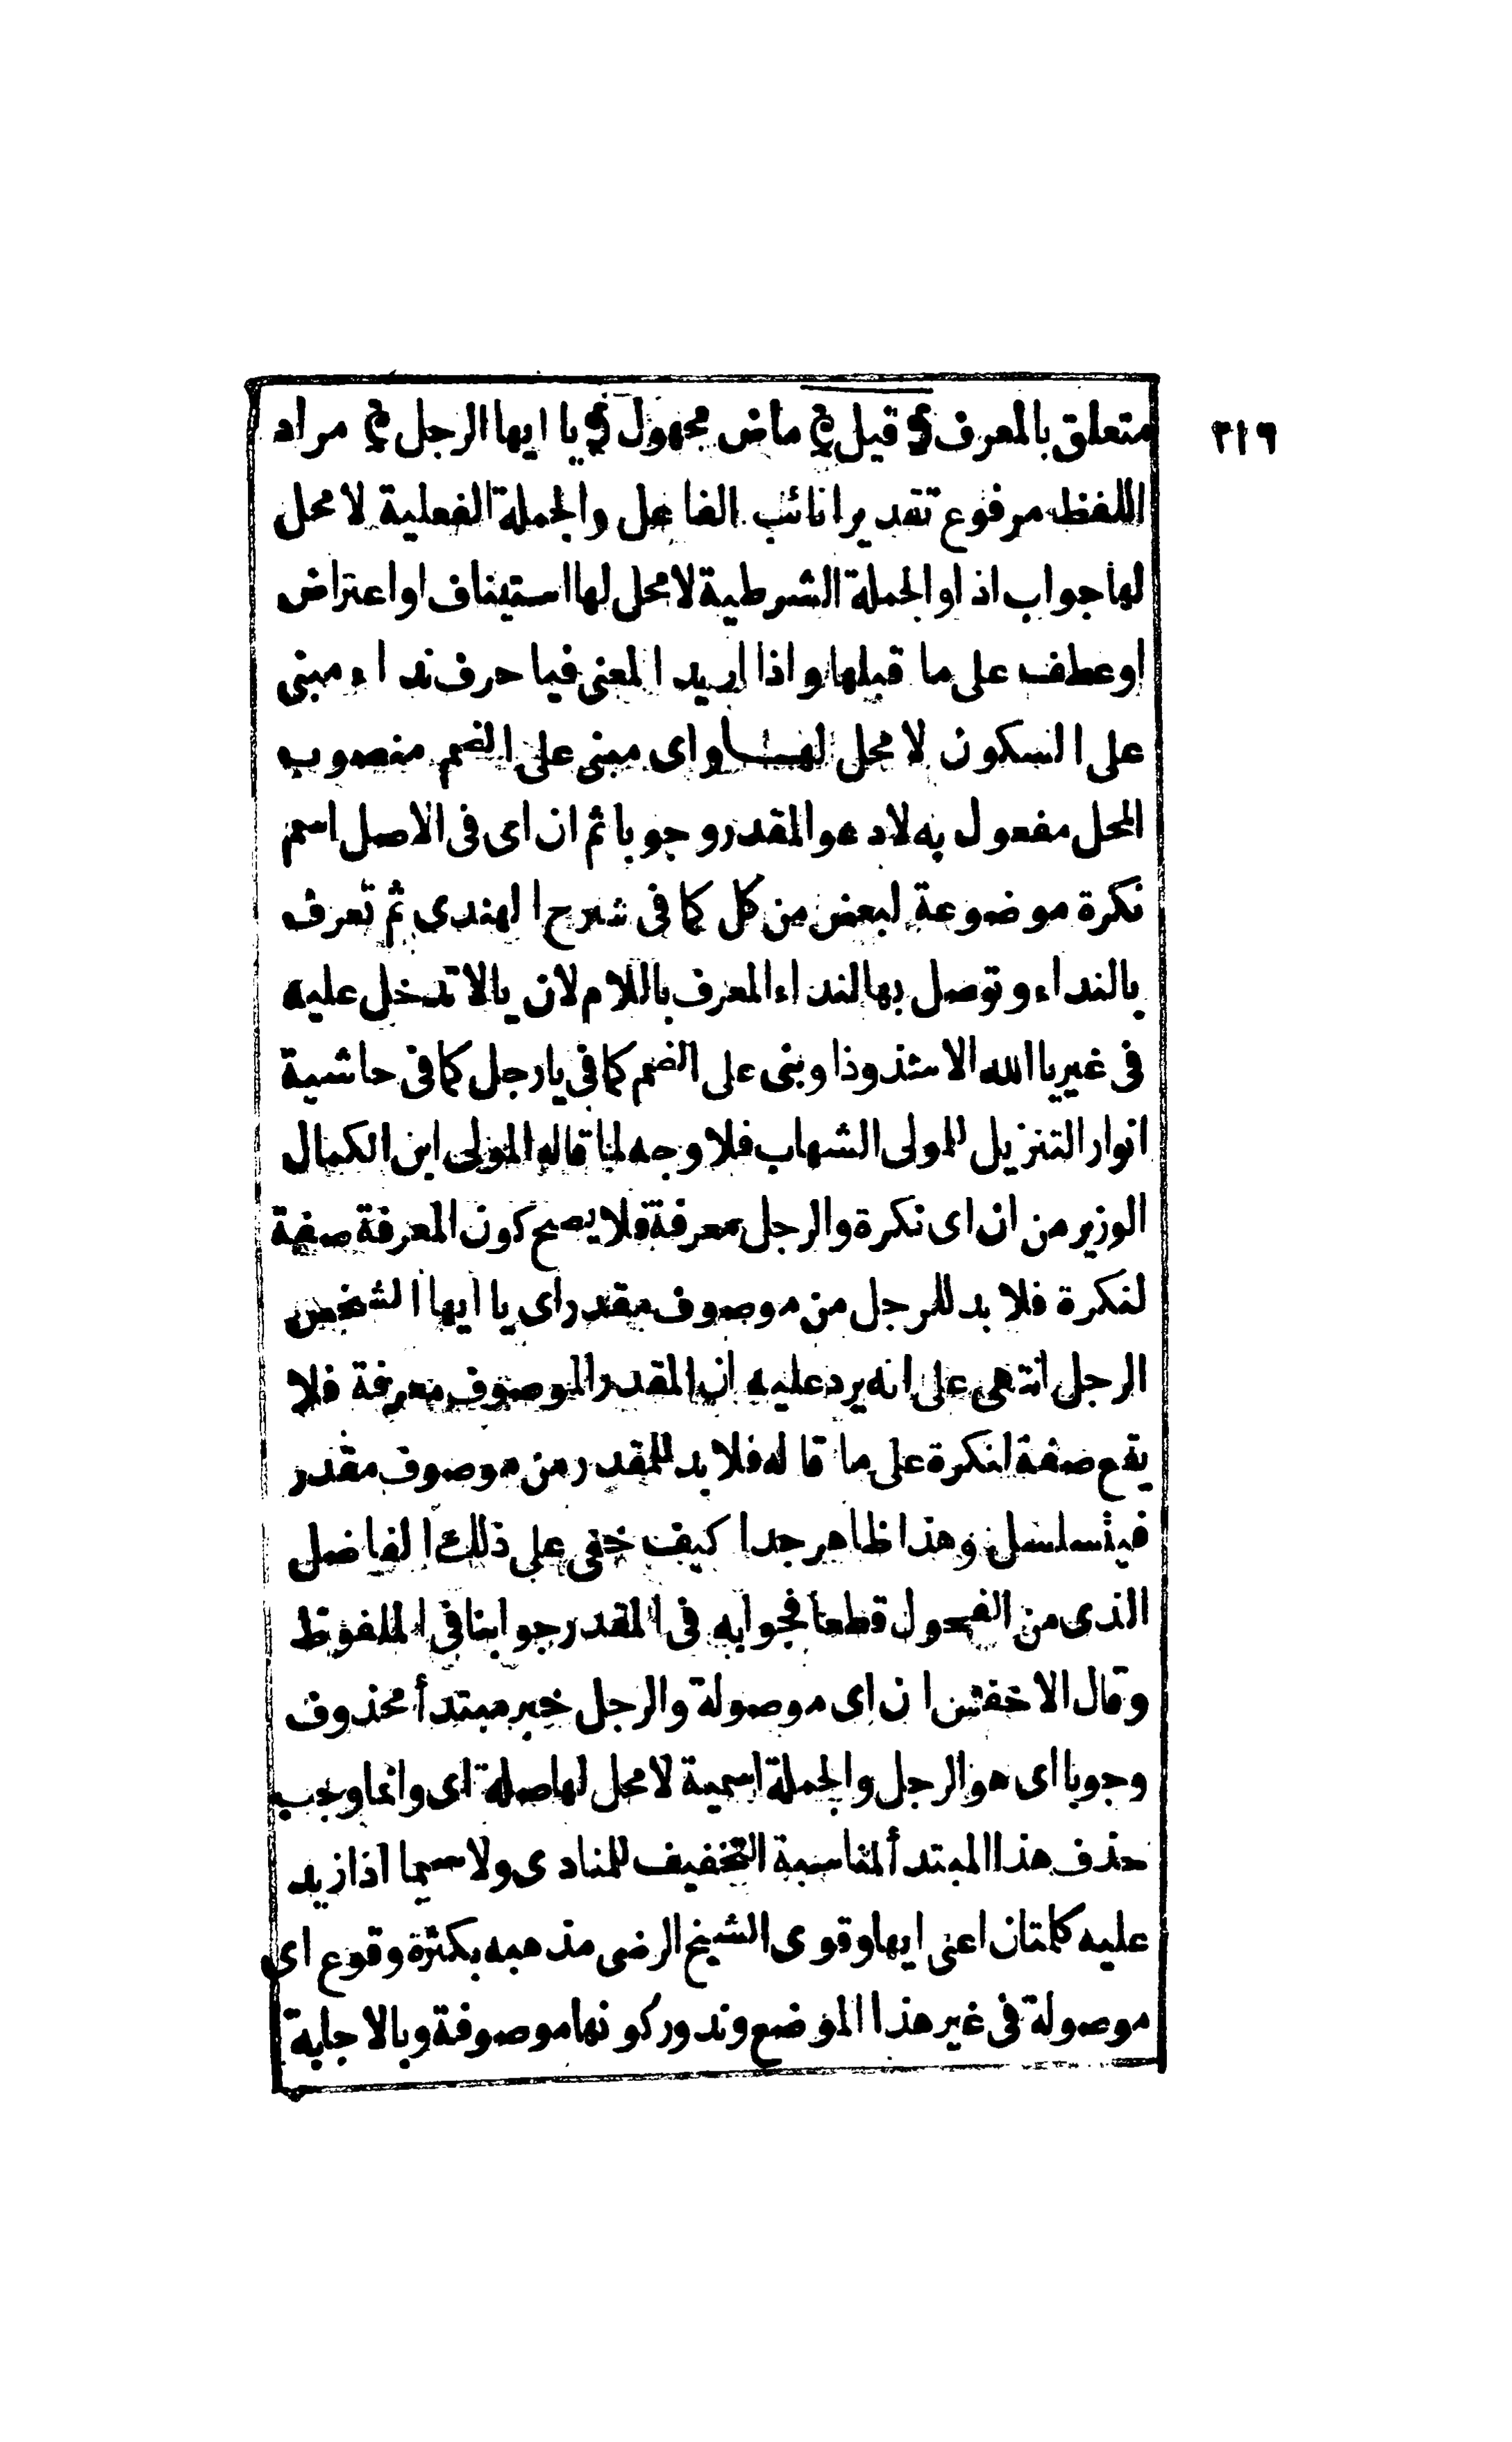 ٣١٦
متعلق بالمعرف ( قيل ) ماض مجهول ( يا ايها الرجل ) مراد
اللفظ مرفوع تقديرا نائب الفاعل والجملة الفعلية لا محل
لها جواب اذا والجملة الشرطية لا محل لها استيناف او اعتراض
او عطف على ما قبلها واذا اريد المعنى فيا حرف نداء مبنى
على السكون لا محل لها واى مبنى على الضم منصوب
المحل مفعول به لادعو المقدر وجوبا ثم ان اى فى الاصل اسم
نكرة موضوعة لبعض من كل كما فى شرح الهندى ثم تعرف
بالنداء وتوصل بها لنداء المعرف باللام لان يا لا تدخل عليه
فى غير يا الله الا شذوذا وبنى على الضم كما فى يا رجل كما فى حاشية
انوار التنزيل للمولى الشهاب فلا وجه لما قاله المولى ابن الكمال
الوزير من ان اى نكرة والرجل معرفة فلا يصح كون المعرفة صفة
لنكرة فلا بد للرجل من موصوف مقدر اى يا ايها الشخص
الرجل انتهى على انه يرد عليه ان المقدر الموصوف معرفة فلا
يقع صفة لنكرة على ما قاله فلا بد للمقدر من موصوف مقدر
فيتسلسل وهذا ظاهر جدا كيف خفى على ذلك الفاضل
الذى من الفحول قطعا فجوابه فى المقدر جوابنا فى الملفوظ
وقال الاخفش ان اى موصولة والرجل خبر مبتدأ محذوف
وجوبا اى هو الرجل والجملة اسمية لا محل لها صلة اى وانما وجب
حذف هذا المبتدأ لمناسبة التخفيف للمنادى ولا سيما اذا زيد
عليه كلمتان اعنى ايها وقوى الشيخ الرضى مذهبه بكثرة وقوع اى
موصولة فى غير هذا الموضع وندور كونها موصوفة وبالاجابة